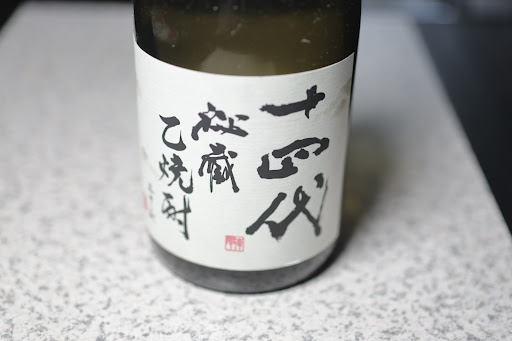 十四代
秘蔵
乙焼酎